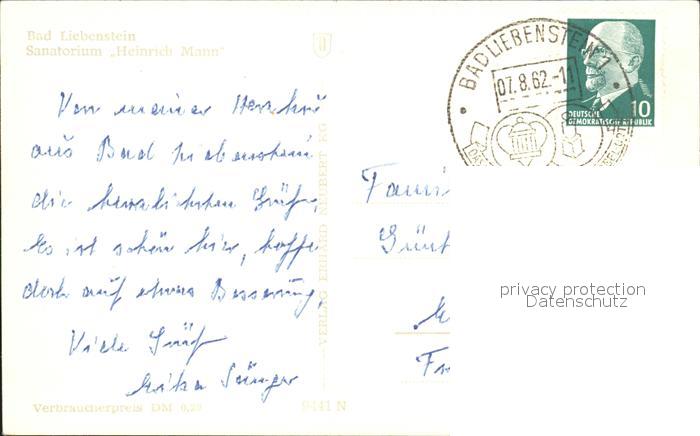 Bad Liebenstein
Sanatorium „Heinrich Mann“
BAD LIEBENSTEIN 1
07.8.62.-11
10
DEUTSCHE
DEMOKRATISCHE REPUBLIK
Von meiner Herzkur
aus Bad Liebenstein
die herzlichsten Grüße,
Es ist schön hier, hoffe
doch auf etwas Besserung,
Viele Grüße
Sänger
Fami
Günt
Fr
VERLAG ERHARD NEUBERT KG
privacy protection
Datenschutz
Verbraucherpreis DM 0,20
9441 N